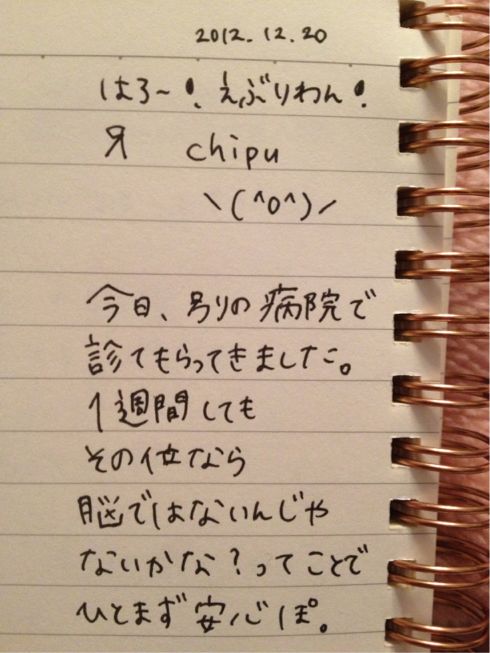 2012.12.20
はろ〜！えぶりわん！
Я chipu
＼(^o^)／
今日、別の病院で
診てもらってきました。
1週間しても
その位なら
脳ではないんじゃ
ないかな？ってことで
ひとまず安心ぽ。